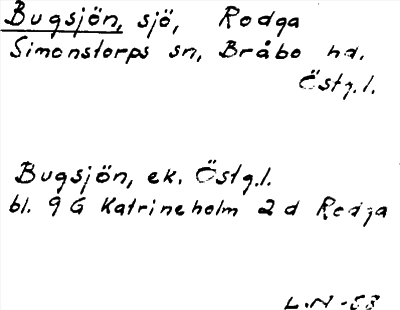 Bugsjön, sjö, Rodga
Simonstorps sn, Bråbo hd.
Östg.l.
Bugsjön, ek. Östg.l.
bl. 9 G Katrineholm 2 d Rodga
L.N -58